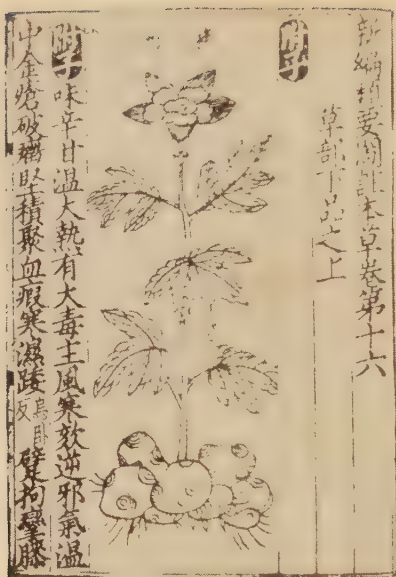 新編類要圖註本草卷第十六
草部下品之上
附子
附子味辛甘溫大熱有大毒主風寒欬逆邪氣溫
中金瘡破癥堅積聚血瘕寒濕踒烏卧反躄拘攣膝